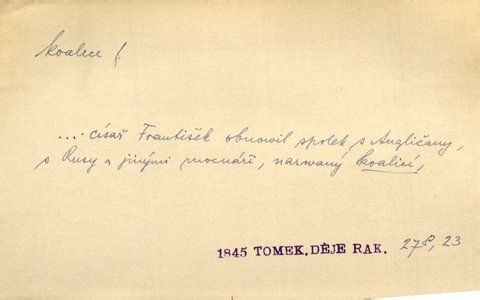 koalice f.
.... císař František obnowil spolek s Angličany,
s Rusy a jinými mocnáři, nazwaný koalicí,
1845 TOMEK, DĚJE RAK. 278, 23